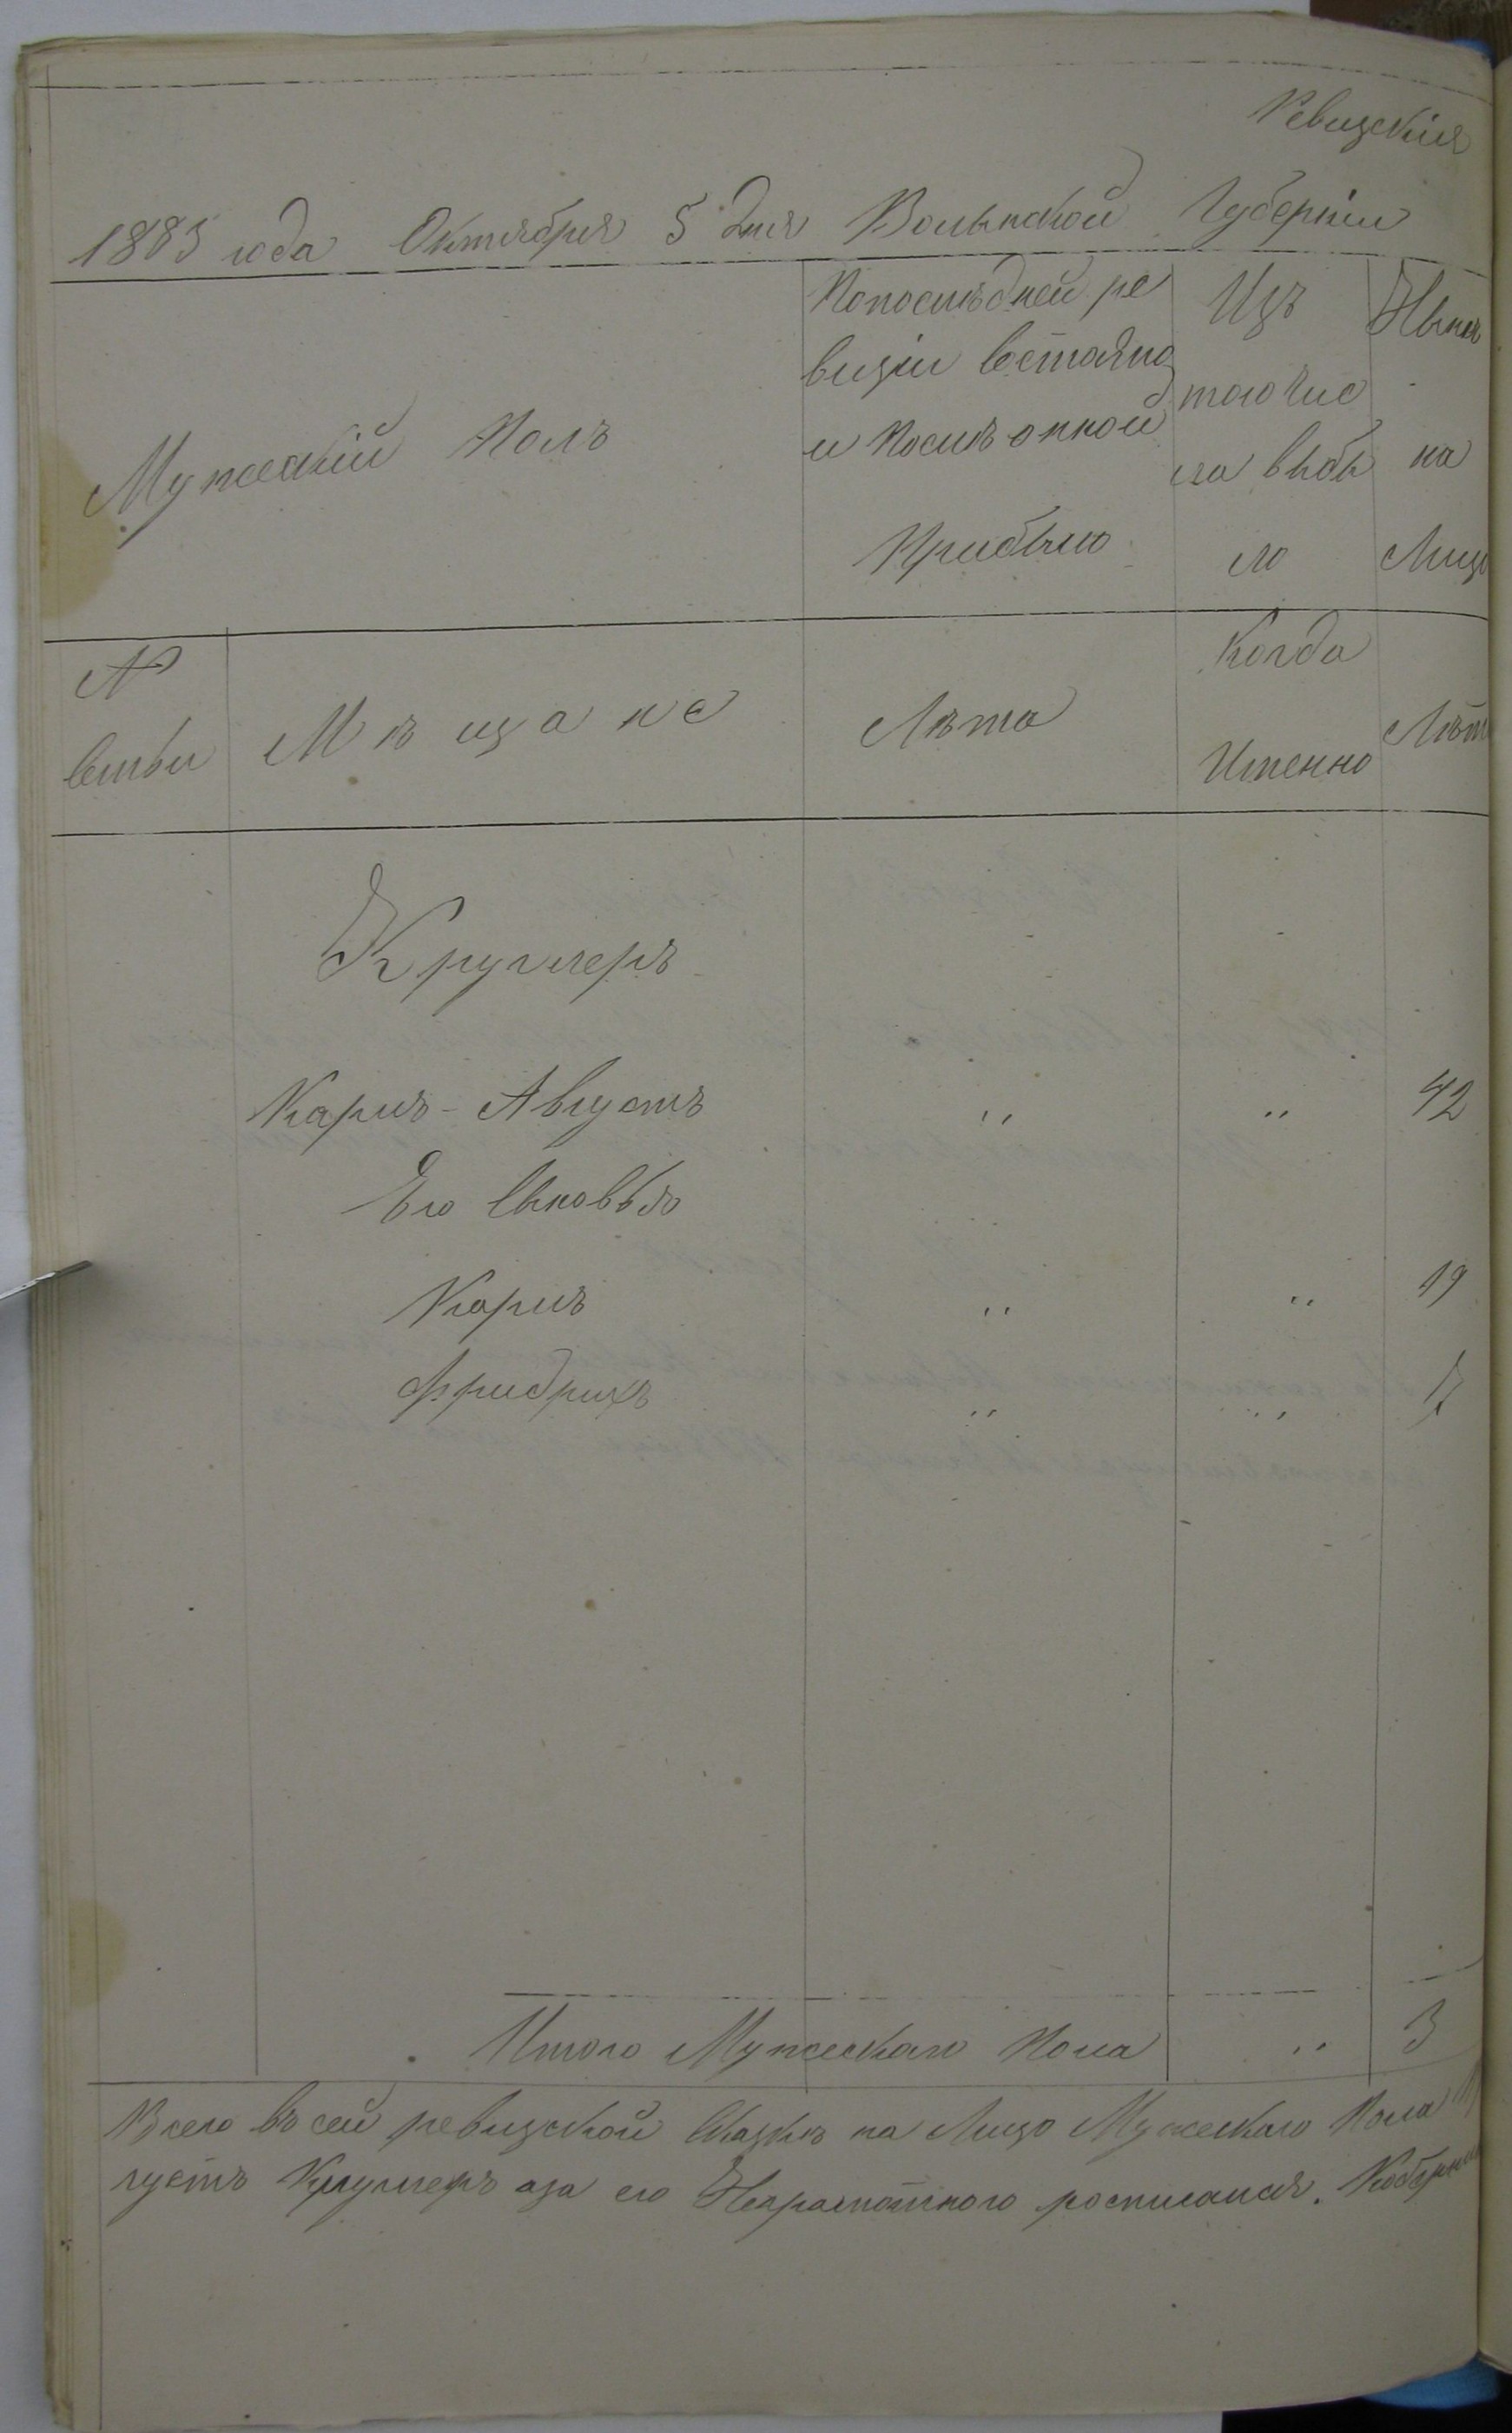 Ревизския
1885 года Октября 5 дня Волынской Губернiи
Мужескiй Полъ
По последней ре
визiи состояло
и после оной
Прибыло
Изъ
того чис
ла выбы
ло
Ныне
на
Лицо
№
семьи
Мѣщане
Лѣта
Когда
Именно
Лѣта
Круммеръ
Карлъ-Августъ " " 42
Его Сыновья
Карлъ " " 19
Фридрихъ " " 17
Итого Мужескаго Пола " 3
Всего въ сей ревизской Сказкѣ на Лицо Мужескаго Пола
густъ Круммеръ аза его Неграмотного росписался.